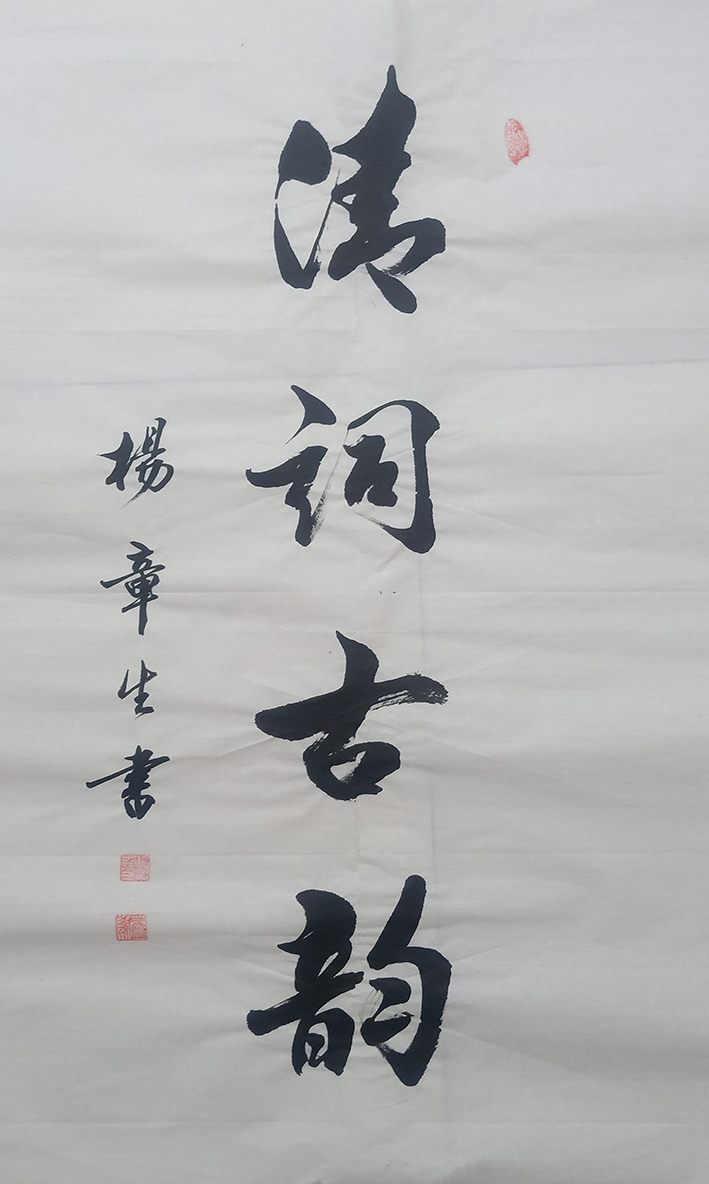 清詞古韵
楊章生書